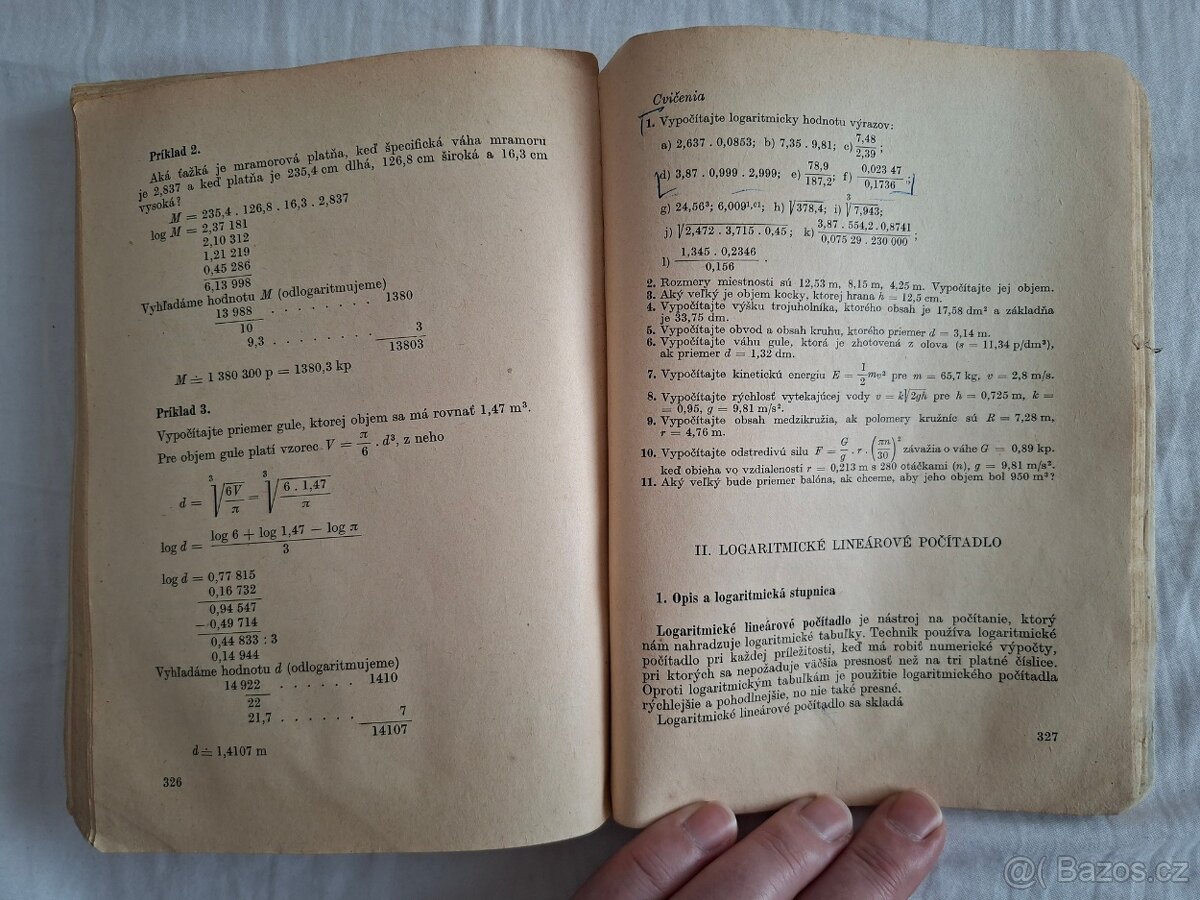 Príklad 2.
Aká ťažká je mramorová platňa, keď špecifická váha mramoru
je 2,837 a keď platňa je 235,4 cm dlhá, 126,8 cm široká a 16,3 cm
vysoká?
M = 235,4 . 126,8 . 16,3 . 2,837
log M = 2,37 181
2,10 312
1,21 219
0,45 286
6,13 998
Vyhľadáme hodnotu M (odlogaritmujeme)
13 988 . . . . . . . . 1380
10
9,3 . . . . . . . . 3
13803
M ≐ 1 380 300 p = 1380,3 kp
Príklad 3.
Vypočítajte priemer gule, ktorej objem sa má rovnať 1,47 m³.
Pre objem gule platí vzorec V = π/6 . d³, z neho
d = ∛(6V/π) = ∛(6 . 1,47/π)
log d = (log 6 + log 1,47 − log π)/3
log d = 0,77 815
0,16 732
0,94 547
− 0,49 714
0,44 833 : 3
0,14 944
Vyhľadáme hodnotu d (odlogaritmujeme)
14 922 . . . . . . 1410
22
21,7 . . . . . . 7
14107
d ≐ 1,4107 m
326
Cvičenia
1. Vypočítajte logaritmicky hodnotu výrazov:
a) 2,637 . 0,0853; b) 7,35 . 9,81; c) 7,48/2,39;
d) 3,87 . 0,999 . 2,999; e) 78,9/187,2; f) 0,023 47/0,1736;
g) 24,56³; 6,009¹,⁶¹; h) √378,4; i) ∛7,943;
j) √2,472 . 3,715 . 0,45; k) (3,87 . 554,2 . 0,8741)/(0,075 29 . 230 000);
l) (1,345 . 0,2346)/0,156 .
2. Rozmery miestnosti sú 12,53 m, 8,15 m, 4,25 m. Vypočítajte jej objem.
3. Aký veľký je objem kocky, ktorej hrana h = 12,5 cm.
4. Vypočítajte výšku trojuholníka, ktorého obsah je 17,58 dm² a základňa
je 33,75 dm.
5. Vypočítajte obvod a obsah kruhu, ktorého priemer d = 3,14 m.
6. Vypočítajte váhu gule, ktorá je zhotovená z olova (s = 11,34 p/dm³),
ak priemer d = 1,32 dm.
7. Vypočítajte kinetickú energiu E = 1/2 mv² pre m = 65,7 kg, v = 2,8 m/s.
8. Vypočítajte rýchlosť vytekajúcej vody v = k√2gh pre h = 0,725 m, k =
= 0,95, g = 9,81 m/s².
9. Vypočítajte obsah medzikružia, ak polomery kružníc sú R = 7,28 m,
r = 4,76 m.
10. Vypočítajte odstredivú silu F = G/g . r . (πn/30)² závažia o váhe G = 0,89 kp.
keď obieha vo vzdialenosti r = 0,213 m s 280 otáčkami (n), g = 9,81 m/s².
11. Aký veľký bude priemer balóna, ak chceme, aby jeho objem bol 950 m³?
II. LOGARITMICKÉ LINEÁROVÉ POČÍTADLO
1. Opis a logaritmická stupnica
Logaritmické lineárové počítadlo je nástroj na počítanie, ktorý
nám nahradzuje logaritmické tabuľky. Technik používa logaritmické
počítadlo pri každej príležitosti, keď má robiť numerické výpočty,
pri ktorých sa nepožaduje väčšia presnosť než na tri platné číslice.
Oproti logaritmickým tabuľkám je použitie logaritmického počítadla
rýchlejšie a pohodlnejšie, no nie také presné.
Logaritmické lineárové počítadlo sa skladá
327
@( Bazos.cz